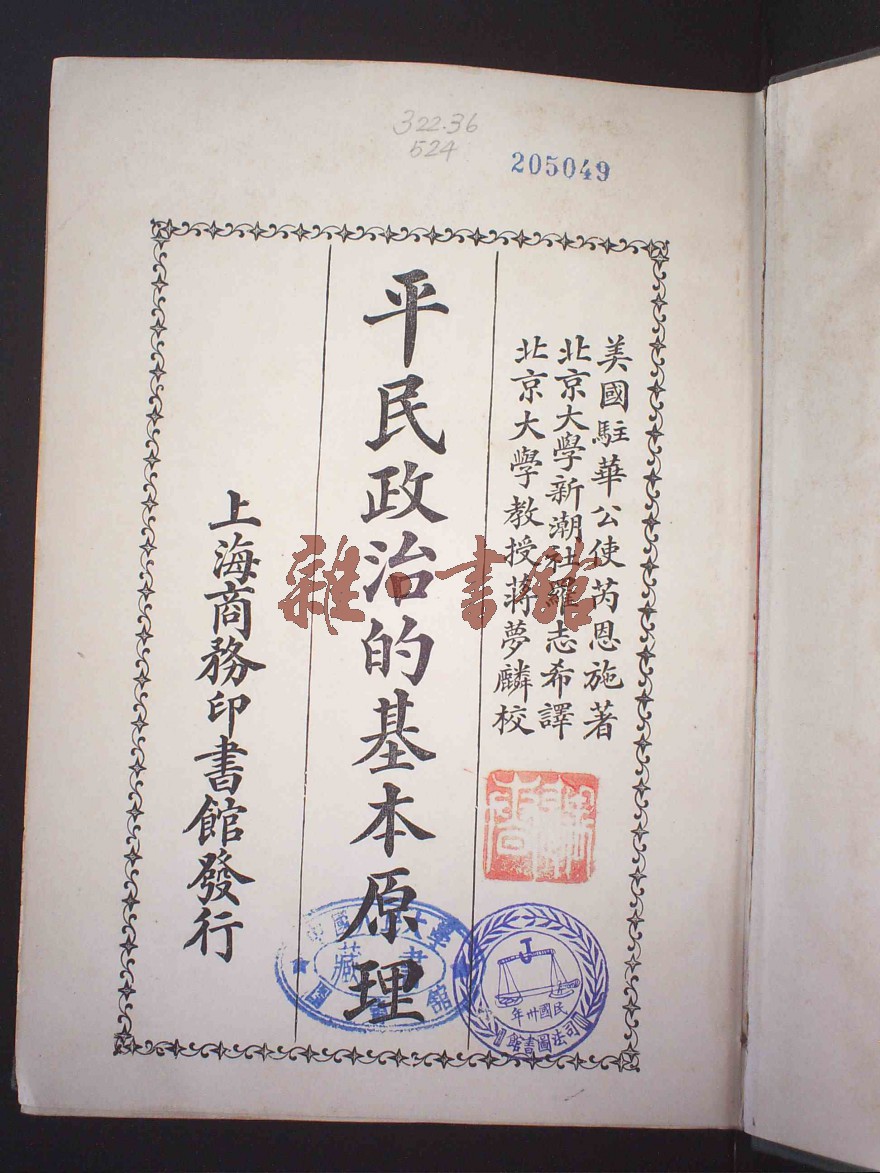 322.36
524
205049
美國駐華公使芮恩施著
北京大學新潮社羅志希譯
北京大學教授蔣夢麟校
平民政治的基本原理
上海商務印書館發行
雜·書館
藏書
民國卅年
司法圖書館